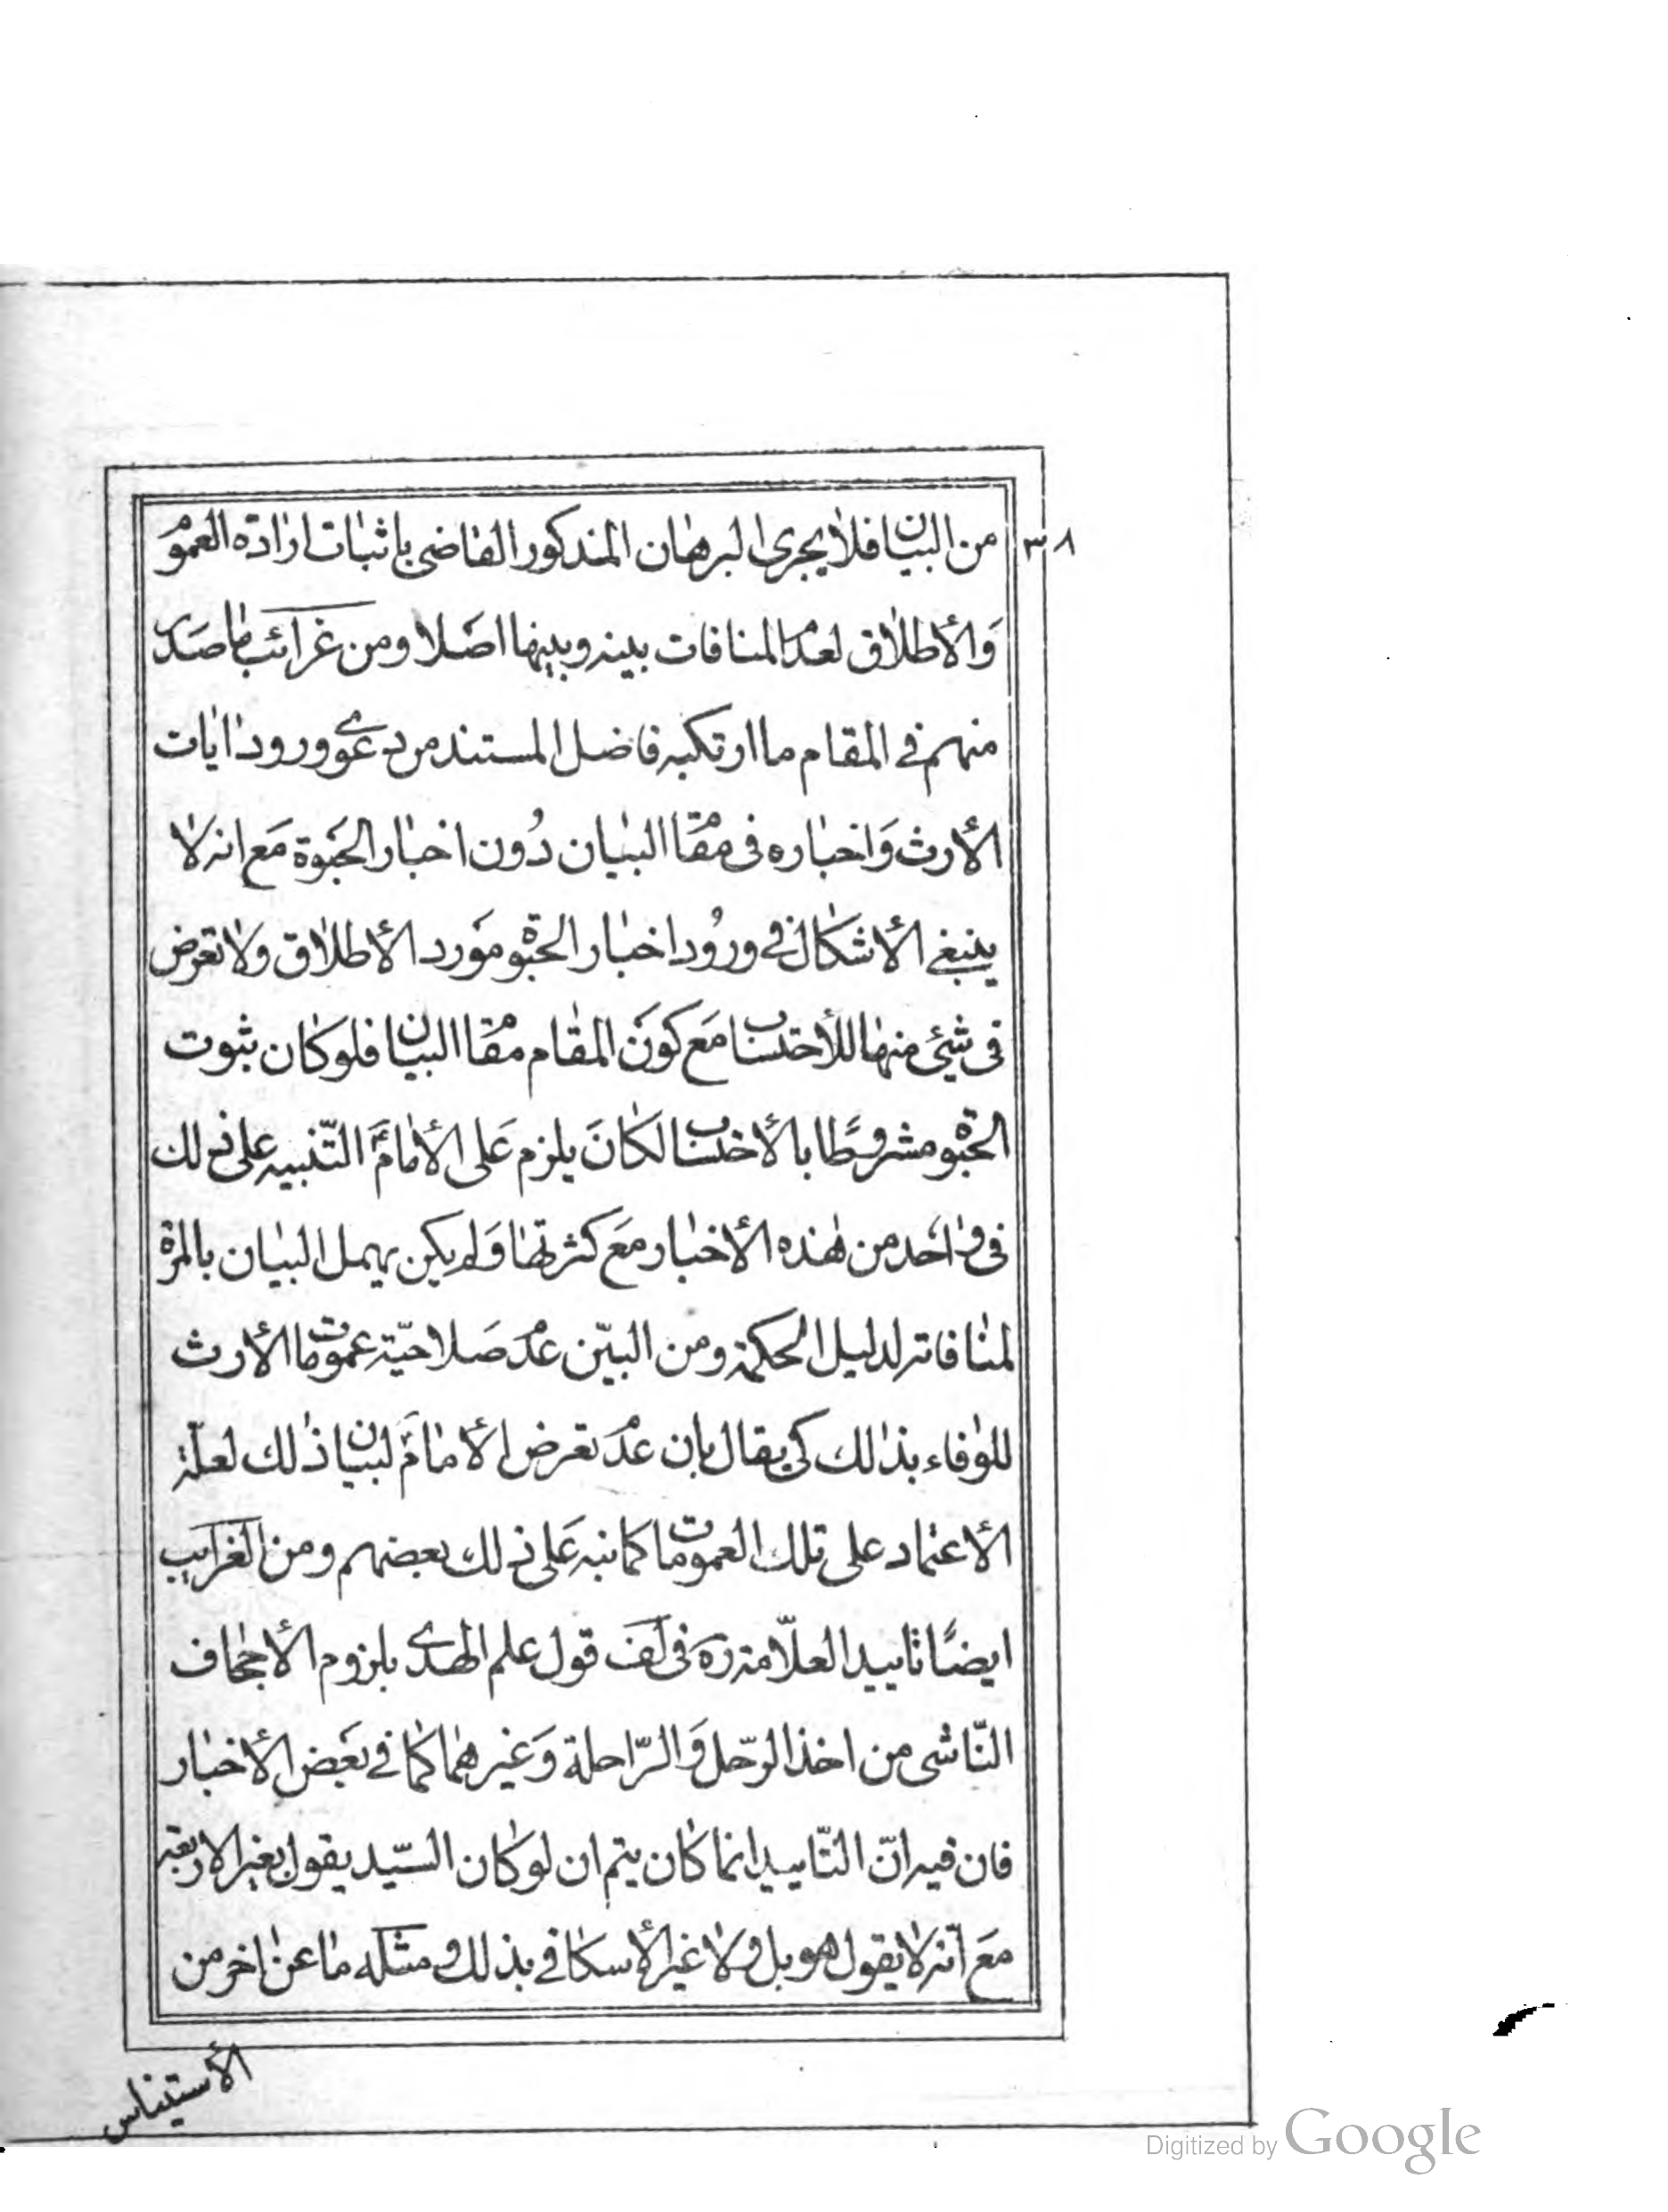 ٣٨
من البيان فلا يجرى البرهان المذكور القاضى باثبات ارادة العموم
وَالأطلاق لعدم المنافات بينه وبينها اصَلا ومن غرائب ما صَدر
منهم في المقام ما ارتكبه فاضل المستند من دعوى ورود ايات
الأرث وَاخباره فى مقام البيان دُون اخبار الحَبوة مَع انه لا
ينبغي الأشكال في ورُود اخبار الحبوة مَورد الأطلاق ولا تعرض
فى شيئ منها للأحتساب مَع كونَ المقام مقام البيان فلو كان ثبوت
الحبوة مشروطًا بالأحتساب لكانَ يلزم عَلى الأمامَ التّنبيه على ذلك
فى وٰاحَد من هٰذه الأخبار مَع كثرتها وَلم يكن يهمل البيان بالمرّة
لمنافاته لدليل الحكمة ومن البيّن عدم صَلاحيّة عمومات الأرث
للوفاء بذلك كي يقال بان عدم تعرض الأمامَ لبيان ذلك لعلّه
الأعتماد على تلك العمومات كما نبه عَلى ذلك بعضهم ومن الغرايب
ايضًا تاييد العلّامة ره فى لَف قول علم الهدى بلزوم الأجحاف
النّاشى من اخذ الرّحل وَالرّاحلة وَغيرهما كما في بَعض الأخبار
فان فيه انّ التّاييد انما كان يتم ان لو كان السّيد يقول بغير الاربعة
مَع انّه لا يقول هو بل ولا غير الأسكافي بذلك ومثله ما عن اخر من
الأستيناس
Digitized by Google